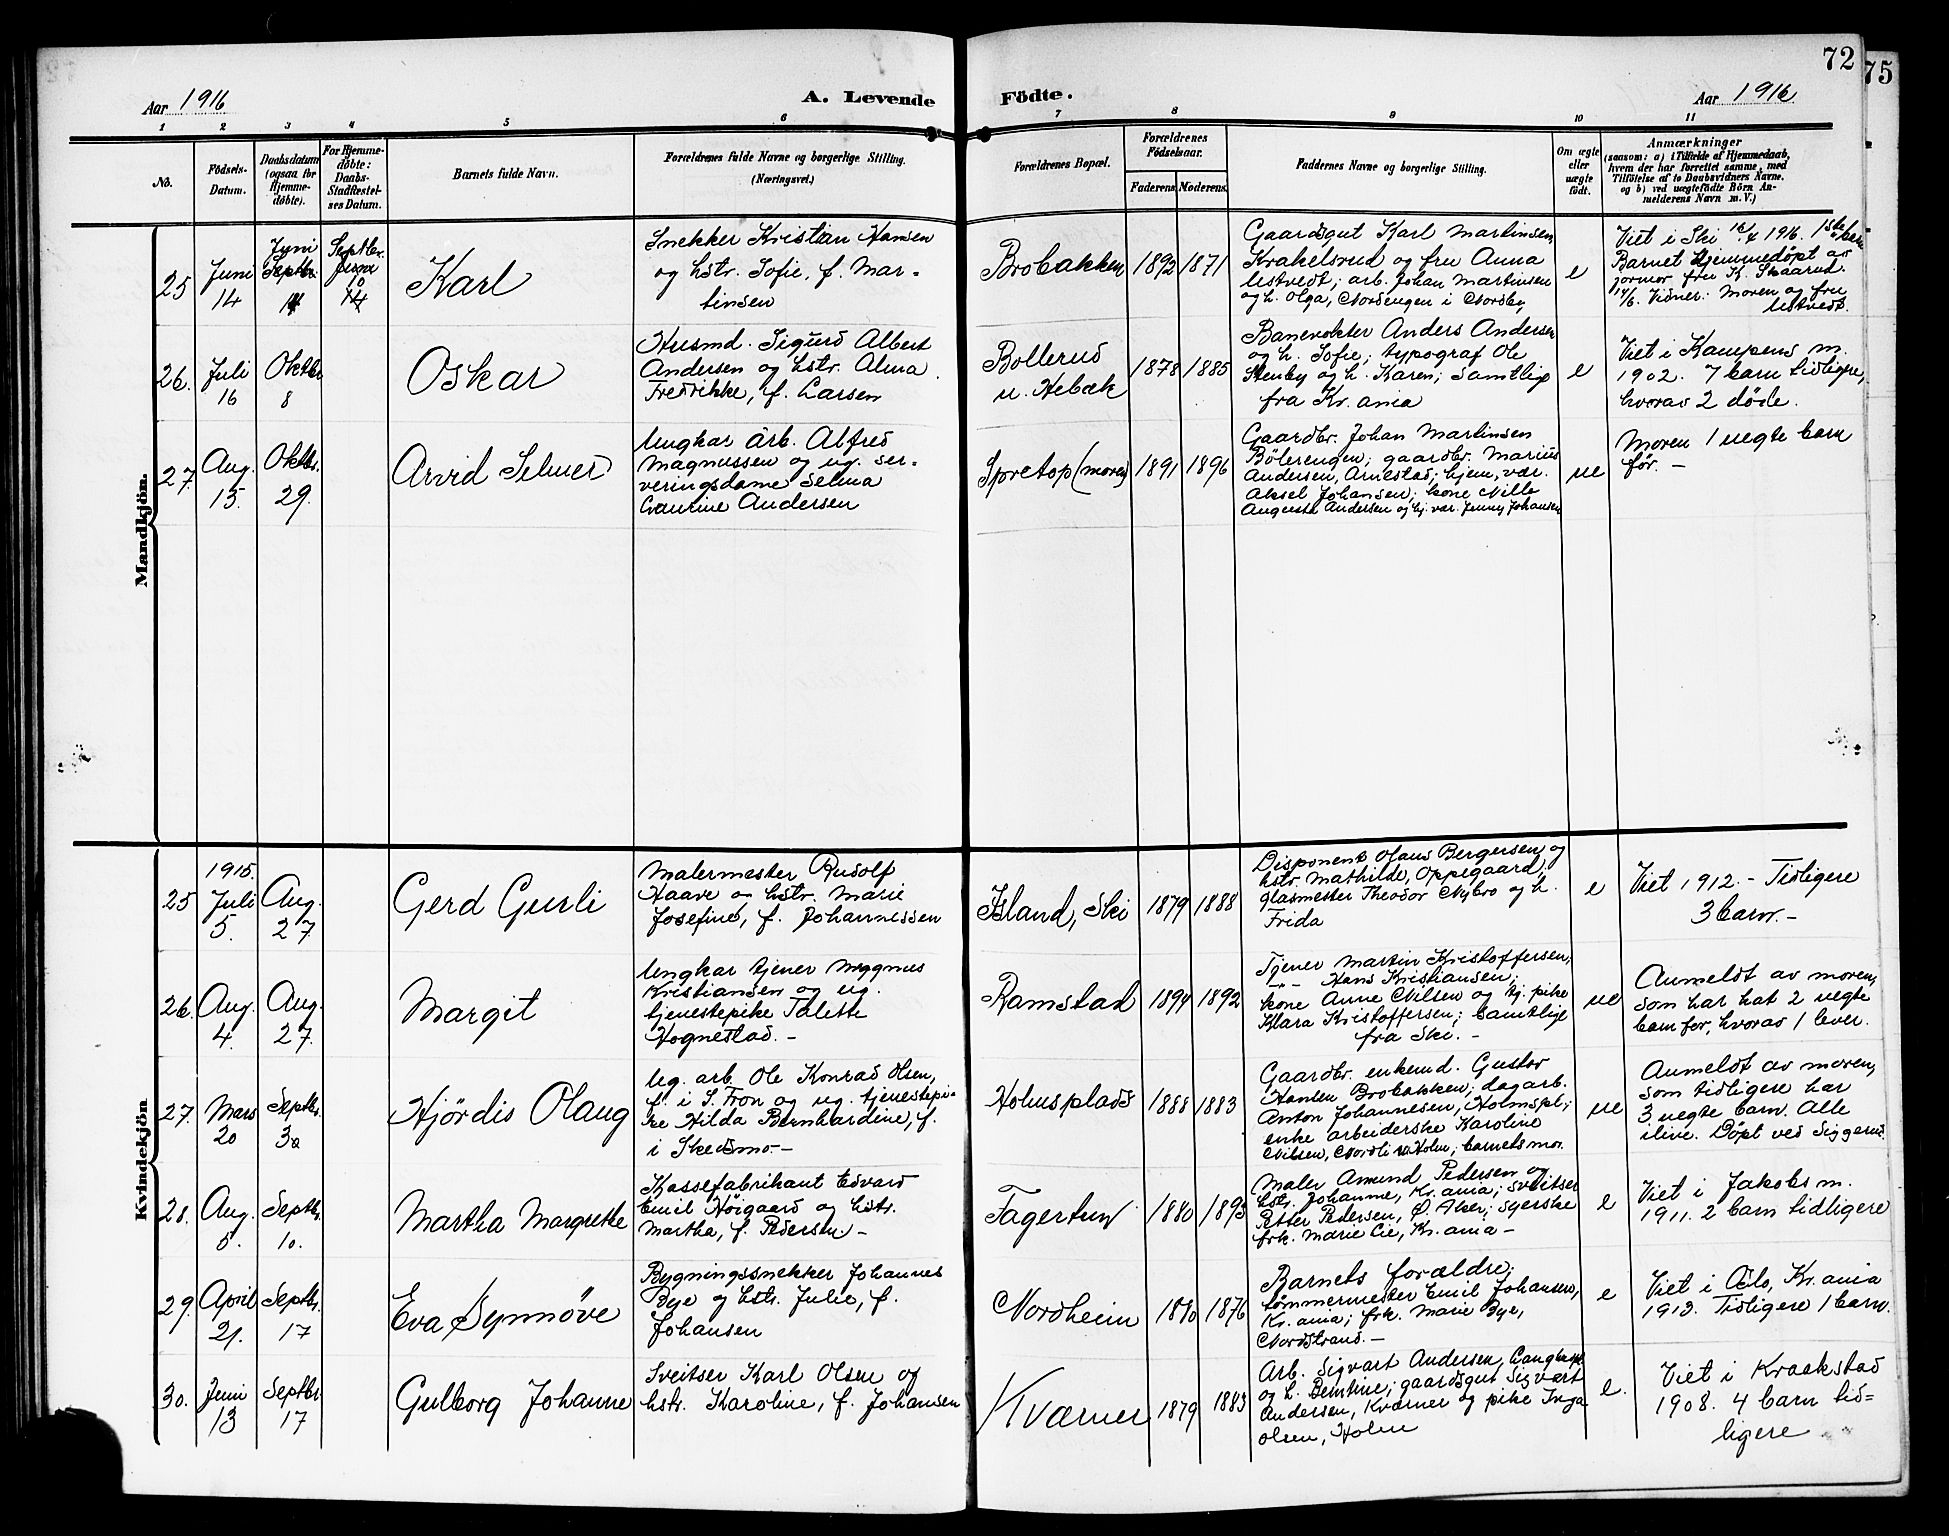 72
75
Aar 1916
A. Levende
Födte.
Aar 1916
1 2 3 4 5 6 7 8 9 10 11
No.
Födsels-
Datum.
Daabsdatum
(ogsaa for
Hjemme-
döbte).
For Hjemme-
döbte:
Daabs-
Stadfæstel-
ses Datum.
Barnets fulde Navn.
Forældrenes fulde Navne og borgerlige Stilling.
(Næringsvei.)
Forældrenes Bopæl.
Forældrenes
Födselsaar.
Faderens. Moderens.
Faddernes Navne og borgerlige Stilling.
Om ægte
eller
uægte
født.
Anmærkninger
(saasom: a) i Tilfælde af Hjemmedaab,
hvem der har forrettet samme, med
Tilföielse af to Daabsvidners Navne.
og b) ved uægtefödte Börn An-
melderens Navn m. V.)
Mandkjön.
25
Juni
14
Jyni
Septbr.
14
Septbr.
10
14
Karl
Snekker Kristian Hansen
og hstr. Sofie, f. Mar-
tinsen
Brobakken
1892
1871
Gaardsgut Karl Martinsen
Krakelsrud og fru Anna
Ustvedt; arb. Johan Martinsen
og h. Olga, Nordengen i Nordby
e
Viet i Ski 16/4 1916. 1ste barn
Barnet hjemmedøpt av
jormor fru K. Skaarud
14/6. Vidner: Moren og fru
Ustvedt.
26.
Juli
16
Oktbr.
8
Oskar
Husmd. Sigurd Albert
Andersen og hstr. Alma
Fredrikke, f. Larsen
Bollerud
u. Hebæk
1878
1885
Banevokter Anders Andersen
og h. Sofie; typograf Ole
Stenby og h. Karen; samtlige
fra Kr.ania
e
Viet i Kampens m.
1902. 7 barn tidligere,
hvorav 2 døde.
27.
Aug.
15.
Oktbr.
29.
Arvid Selmer
Ungkar arb. Alfred
Magnussen og ug. ser-
veringsdame Selma
Evantine Andersen
Spretop (moren)
1891
1896
Gaardbr. Johan Martinsen
Bölerengen; gaardbr. Marius
Andersen, Arnestad; hjem. vær.
Aksel Johansen; kone Mille
Augusta Andersen og hj. vær. Jenny Johansen
ue
Moren 1 uegte barn
før. -
Kvindekjön
25
1915.
Juli
5.
Aug.
27
Gerd Gurli
Malermester Rudolf
Haave og hstr. Marie
Josefine, f. Johannessen
Island, Ski
1879
1888
Disponent Olaus Bergersen og
hstr. Mathilde, Oppegaard;
glasmester Theodor Nybro og h.
Frida
e
Viet 1912. - Tidligere
3 barn. -
26.
Aug.
4.
Aug.
27.
Margit
Ungkar tjener Magnus
Kristiansen og ug.
tjenestepike Talette
Hognestad. -
Ramstad
1894
1892
Tjener Martin Kristoffersen,
-"- Hans Kristiansen;
kone Anne Nilsen og tj. pike
Klara Kristoffersen; samtlige
fra Ski. -
ue
Anmeldt av moren,
som har hat 2 uegte
barn før, hvorav 1 lever.
27.
Mars
20
Septbr.
3
Hjördis Olaug
Ug. arb. Ole Konrad Olsen,
f. i S. Fron og ug. tjenestepi-
ke Hilda Bernhardine, f.
i Skedsmo. -
Holmsplads
1888
1883
Gaardbr. enkemd. Gustav
Hansen Brobakken; dagarb.
Anton Johannesen, Holmspl.;
enke arbeiderske Karoline
Nilsen, Nordli u. Holm; barnets mor.
ue
Anmeldt av moren,
som tidligere har
3 uegte barn. Alle
ilive. Döpt ved Siggerud.
28.
Aug.
5.
Septbr.
10.
Martha Margrethe
Kassefabrikant Edvard
Emil Höigaard og hstr.
Martha, f. Pedersen -
Fagertun
1880
1893
Maler Amund Pedersen og
hstr. Johanne, Kr.ania; sveitser
Petter Pedersen, Ø. Aker; syerske
frk. Marie Lie, Kr.ania -
e
Viet i Jakobs m.
1911. 2 barn tidligere
29.
April
21.
Septbr.
17
Eva Synnöve
Bygningssnekker Johannes
Bye og hstr. Julie, f.
Johansen
Nordheim
1876
Barnets forældre;
tömmermester Emil Johansen,
Kr.ania; frk. Marie Bye,
Nordstrand. -
e
Viet i Oslo, Kr.ania
1913. Tidligere 1 barn.
30.
Juni
13
Septbr.
17
Gulborg Johanne
Sveitser Karl Olsen og
hstr. Karoline, f. Johansen
Kværner
1879
1883
Arb. Sigvart Andersen,
og h. Berntine; gaardsgut Sigvart
Andersen, Kværner og pike Inga
Olsen, Holm
e.
Viet i Kraakstad
1908. 4 barn tid=
ligere